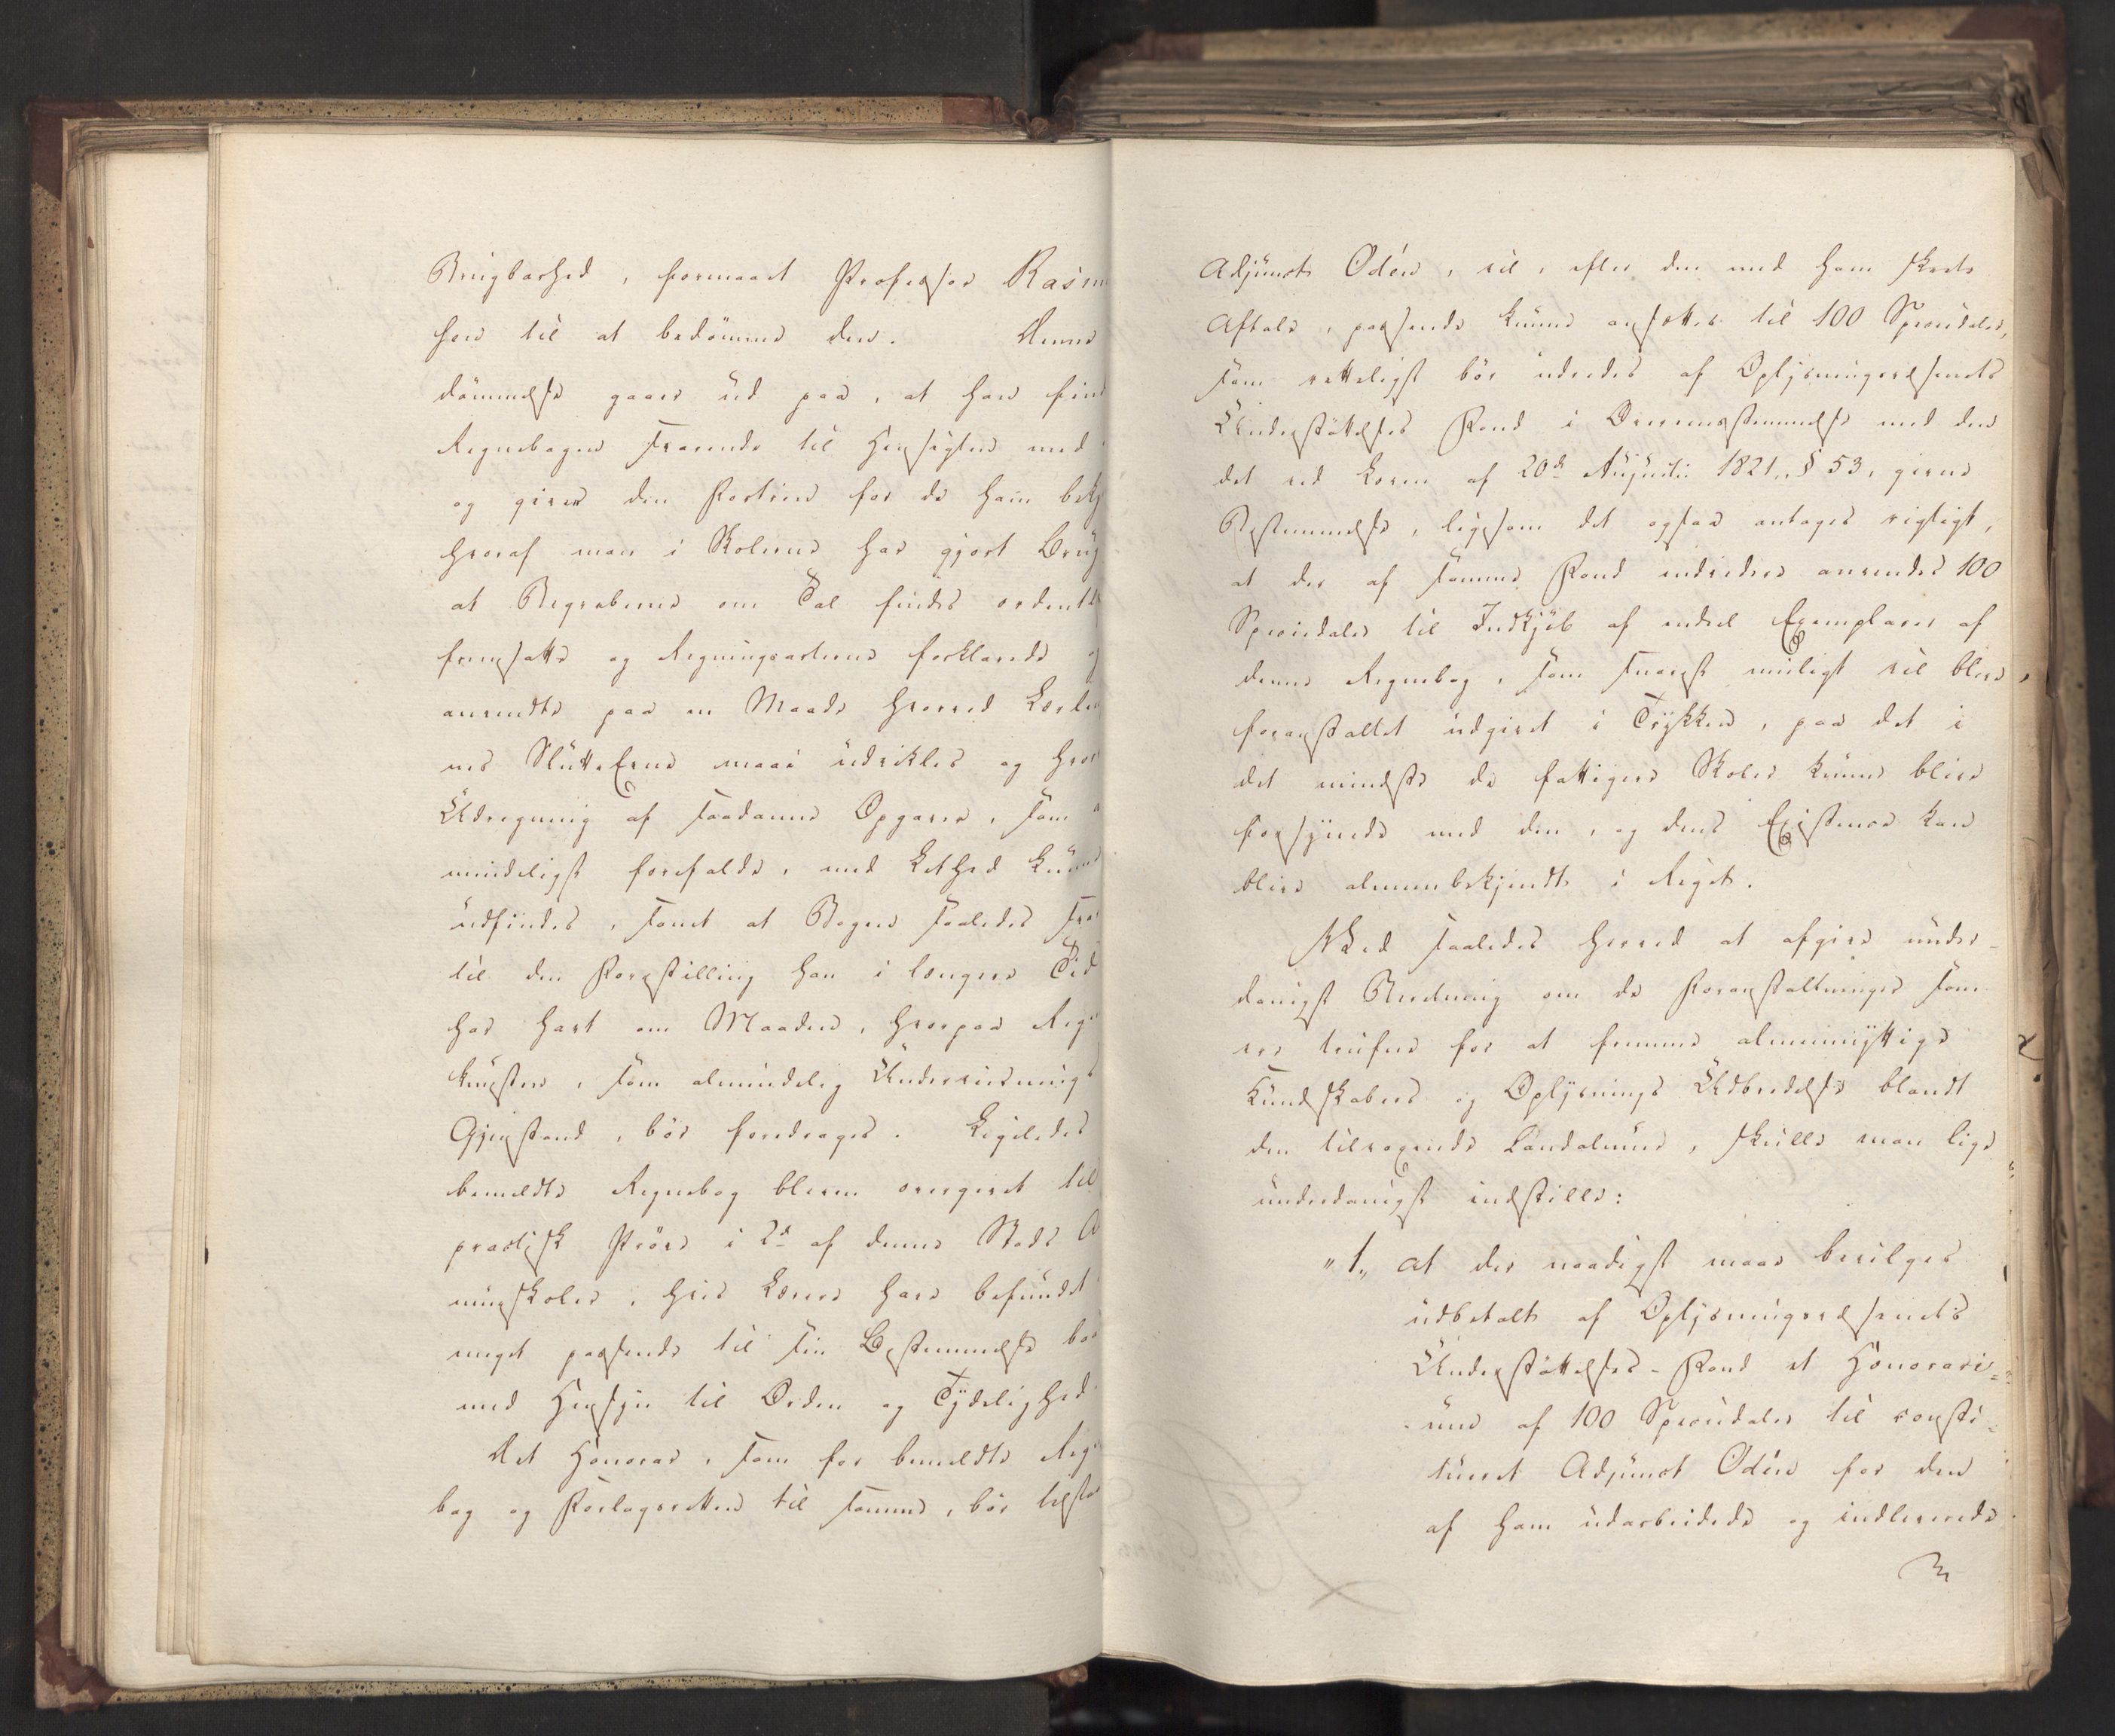 Brugbarhed, formaaet Professor Rasm
sen til at bedömme den. Denne
dömmelse gaaer ud paa, at han fin
Regnebogen svarende til Hensigten med
og giver den Fortrin for de ham bekj
hvoraf man i Skolerne har gjort Brug
at Begreberne om Tal findes ordentl
fremsatte og Regningsarterne forklarede o
anvendte paa en Maade hvorved Lærlin
nes Slutte Evne maae udvikles og hvor
Udregning af saadanne Opgaver, som a
mindeligst forefalde, med Lethed kunne
udfindes, samt at Bogen saaledes svar
til den Forestilling han i længere Tid
har havt om Maaden, hvorpaa Regne
kunsten, som almindelig Underviisnings
Gjenstand, bör foredrages. Ligeledes
bemeldte Regnebog bleven overgivet til
practisk Pröve i 2de af denne Stads A
mueskoler, hvis Lærere have befundet
meget passende til sin Bestemmelse baa
med Hensyn til Orden og Tydelighed.
Det Honorar, som for bemeldte Regne
bog og Forlagsretten til samme, bör tilstaa
Adjunct Odén, vil, efter den med ham skete
Aftale, passende kunne ansættes til 100 Speciedaler,
som retteligst bör udredes af Oplysningsvæsenets
Understöttelses Fond i Overeensstemmelse med den
det ved Loven af 20de Augusti 1821, § 53, givne
Bestemmelse, ligesom det ogsaa antages rigtigt,
at der af samme Fond endvidere anvendes 100
Speciedaler til Indkjöb af endeel Exemplarer af
denne Regnebog, som snarest mueligt vil blive
foranstaltet udgivet i Trykken, paa det i
det mindste de fattigere Skoler kunne blive
forsynede med den, og dens Existence kan
blive almeenbekjendt i Riget.
Ved saaledes herved at afgive under-
danigst Beretning om de Foranstaltninger som
ere trufne for at fremme almeennyttige
Kundskabers og Oplysnings Udbredelse blandt
den tilvoxende Landalmue, skulle man lige
underdanigst indstille:
"1., at der naadigst maae bevilges
udbetalt af Oplysningsvæsenets
Understöttelses-Fond et Honorari=
um af 100 Speciedaler til consti=
tueret Adjunct Odén for den
af ham udarbeidede og indleverede